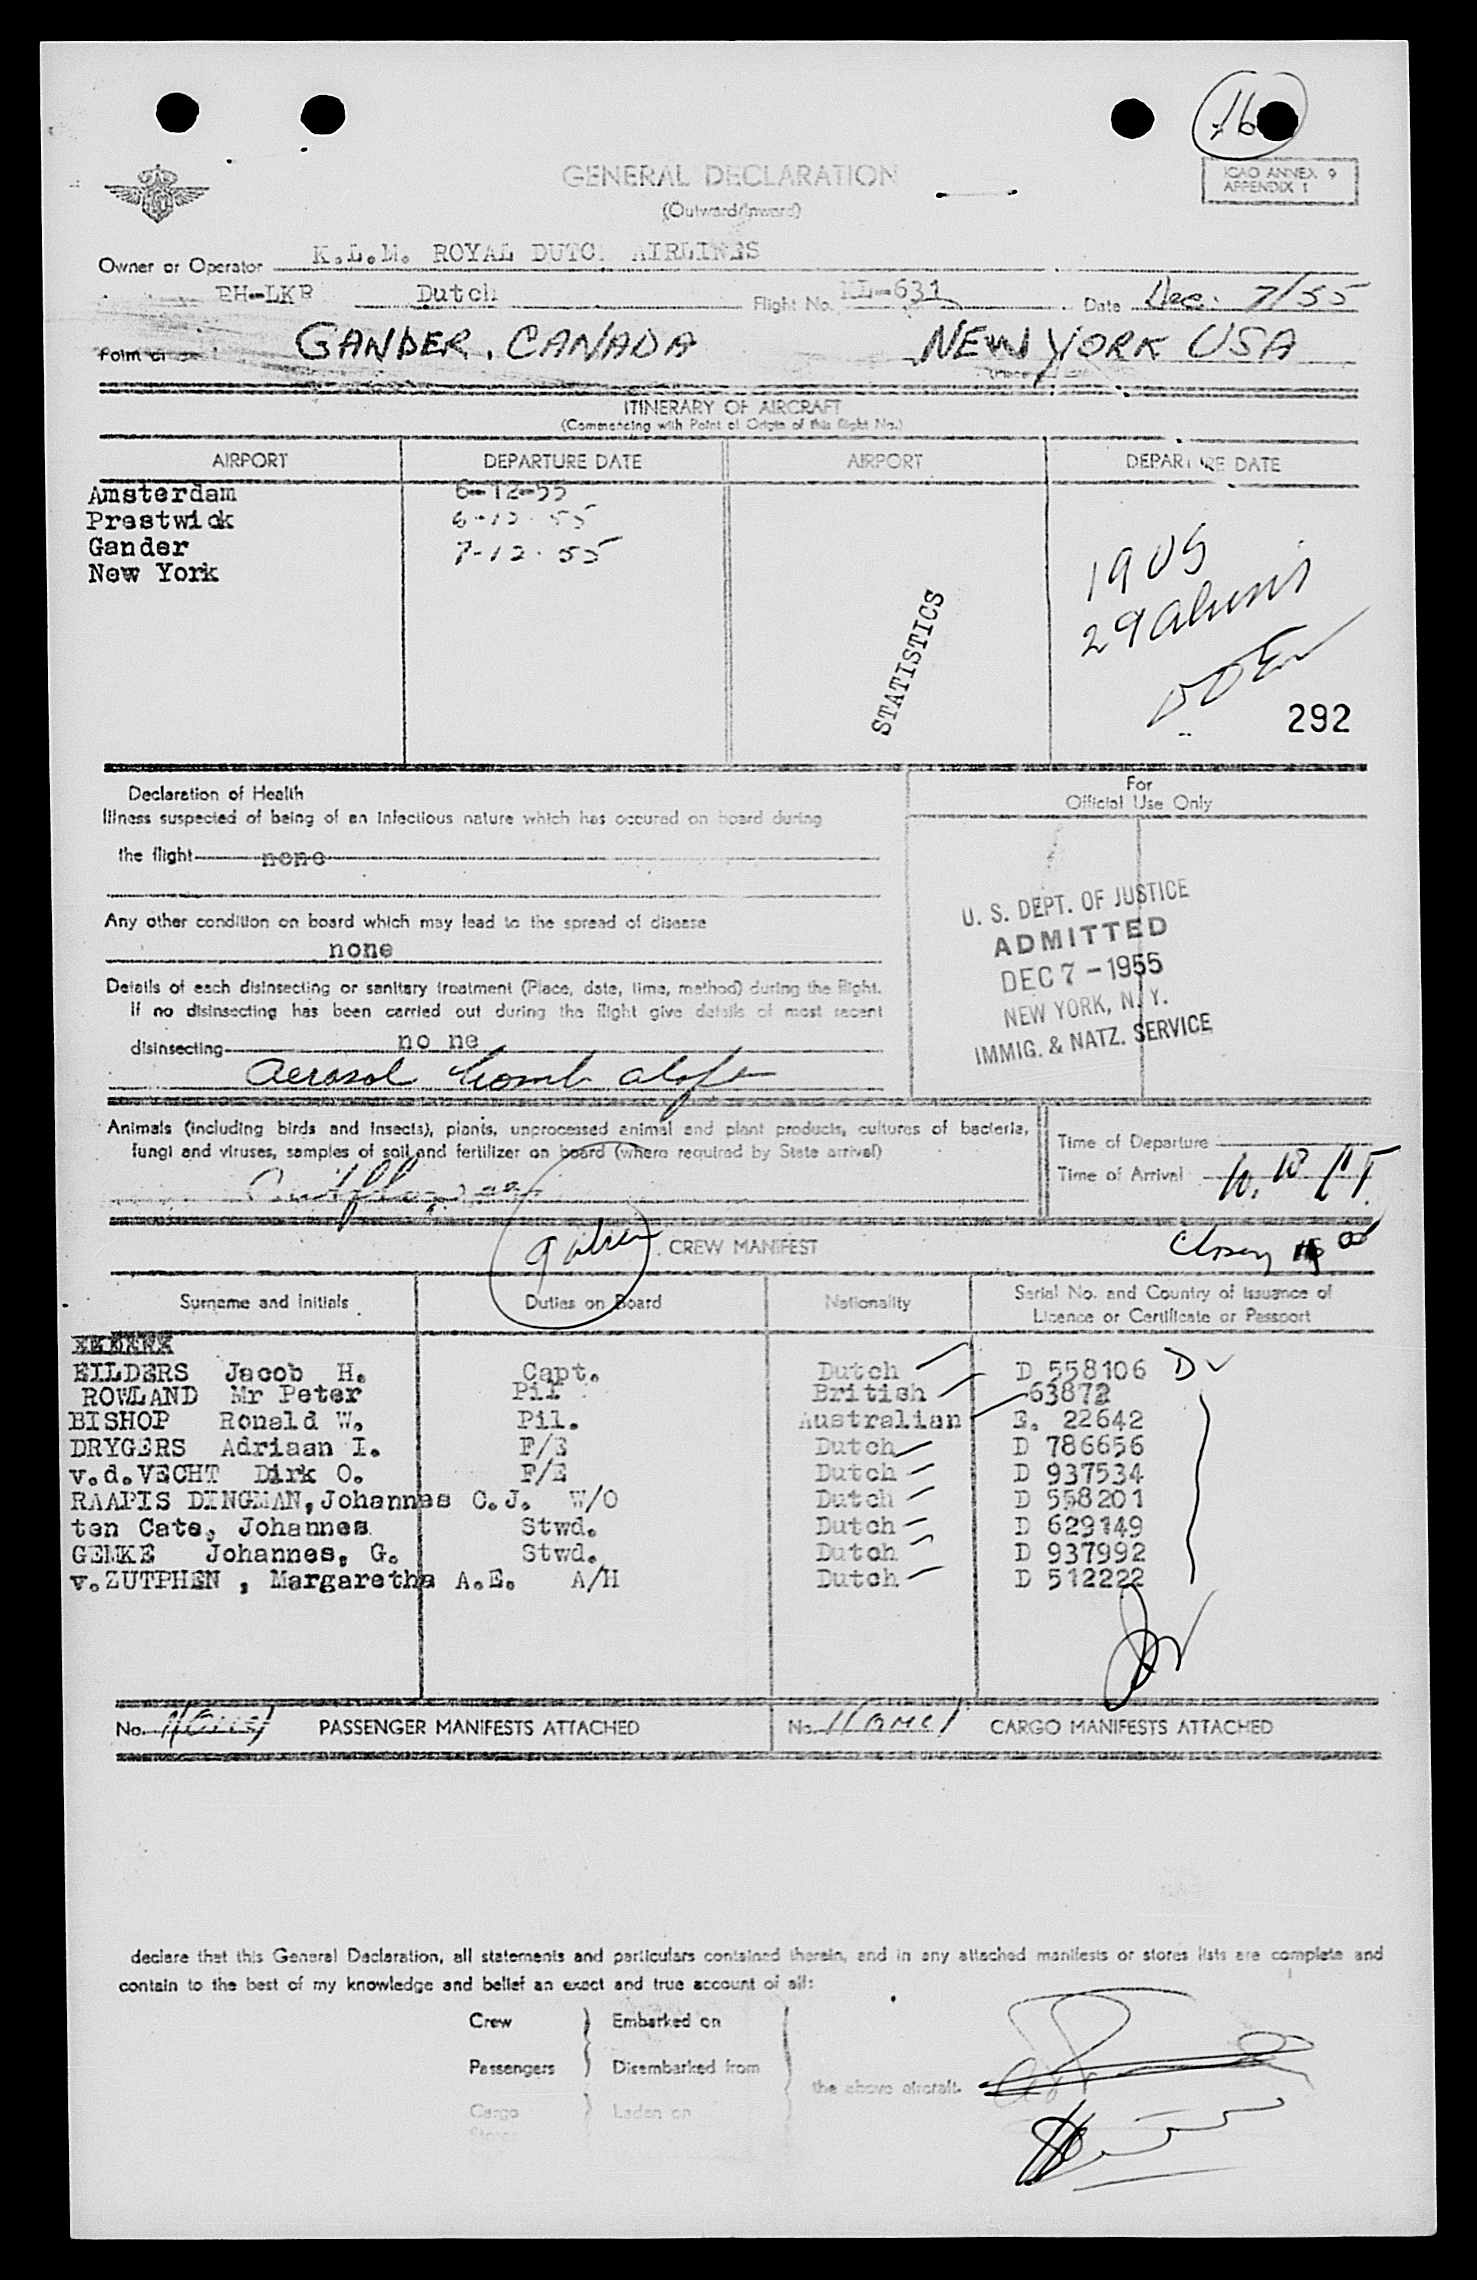 16
GENERAL DECLARATION
(Outward/Inward)
ICAO ANNEX 9
APPENDIX 1
Owner or Operator K.L.M. ROYAL DUTC AIRLINES
PH-LKP Dutch Flight No. KL-631 Date Dec. 7/55
GANDER, CANADA NEW YORK USA
ITINERARY OF AIRCRAFT
(Commencing with Point of Origin of this flight No.)
AIRPORT DEPARTURE DATE AIRPORT DEPARTURE DATE
Amsterdam 6-12-55
Prestwick 6-12-55
Gander 7-12-55
New York
STATISTICS
1905
29 aliens
292
Declaration of Health
Illness suspected of being of an infectious nature which has occured on board during
the flight none
Any other condition on board which may lead to the spread of disease
none
Details of each disinsecting or sanitary treatment (Place, date, time, method) during the flight.
If no disinsecting has been carried out during the flight give details of most recent
disinsecting no ne
Aerosol bomb aloft
For
Official Use Only
U. S. DEPT. OF JUSTICE
ADMITTED
DEC 7 - 1955
NEW YORK, N.Y.
IMMIG. & NATZ. SERVICE
Animals (including birds and insects), plants, unprocessed animal and plant products, cultures of bacteria,
fungi and viruses, samples of soil and fertilizer on board (where required by State arrival)
Cut flowers
Time of Departure
Time of Arrival
9 alien
CREW MANIFEST
Surname and initials Duties on Board Nationality Serial No. and Country of Issuance of
Licence or Certificate or Passport
EILDERS Jacob H. Capt. Dutch D 558106
ROWLAND Mr Peter Pil British 63872
BISHOP Ronald W. Pil. Australian E. 22642
DRYGERS Adriaan I. F/E Dutch D 786656
v.d.VECHT Dirk O. F/E Dutch D 937534
RAAPIS DINGMAN, Johannes C.J. W/O Dutch D 558201
ten Cate, Johannes Stwd. Dutch D 629149
GEMKE Johannes, G. Stwd. Dutch D 937992
v.ZUTPHEN , Margaretha A.E. A/H Dutch D 512222
No. PASSENGER MANIFESTS ATTACHED No. CARGO MANIFESTS ATTACHED
declare that this General Declaration, all statements and particulars contained therein, and in any attached manifests or stores lists are complete and
contain to the best of my knowledge and belief an exact and true account of all:
Crew Embarked on
Passengers Disembarked from
the above aircraft.
Cargo Laden on
Stores